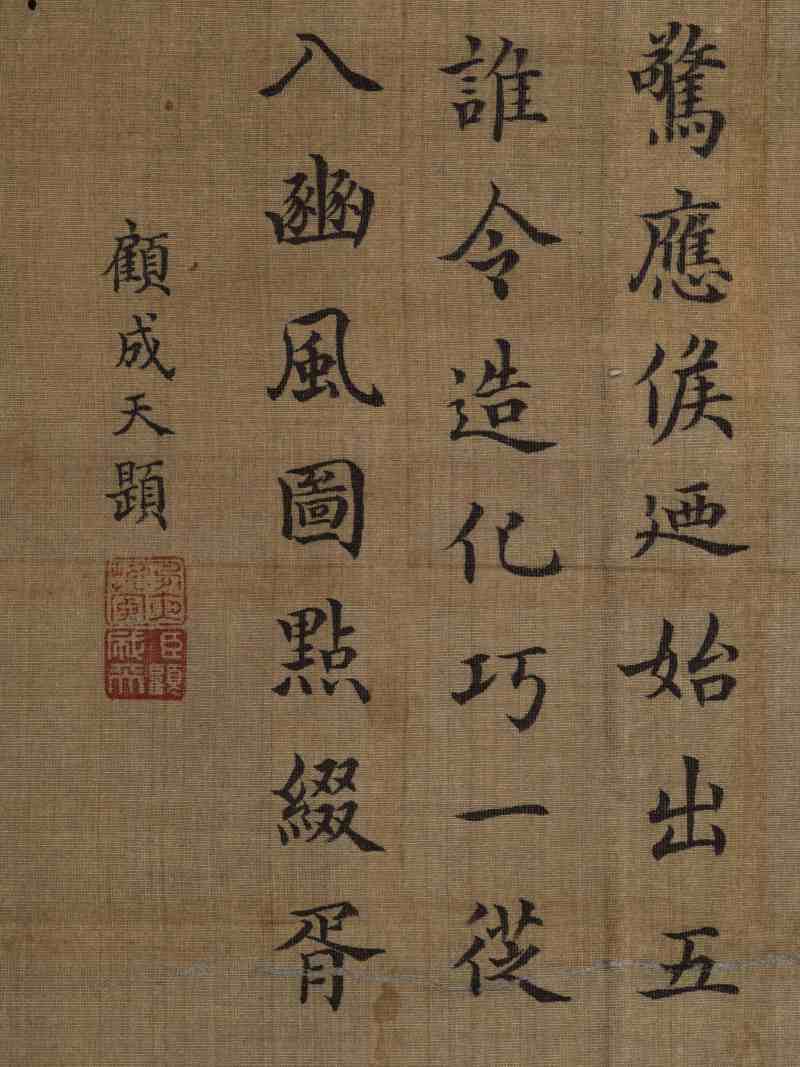 驚應候廼始出五
誰令造化巧一從
入豳風圖點綴胥
顧成天題
臣顧成天